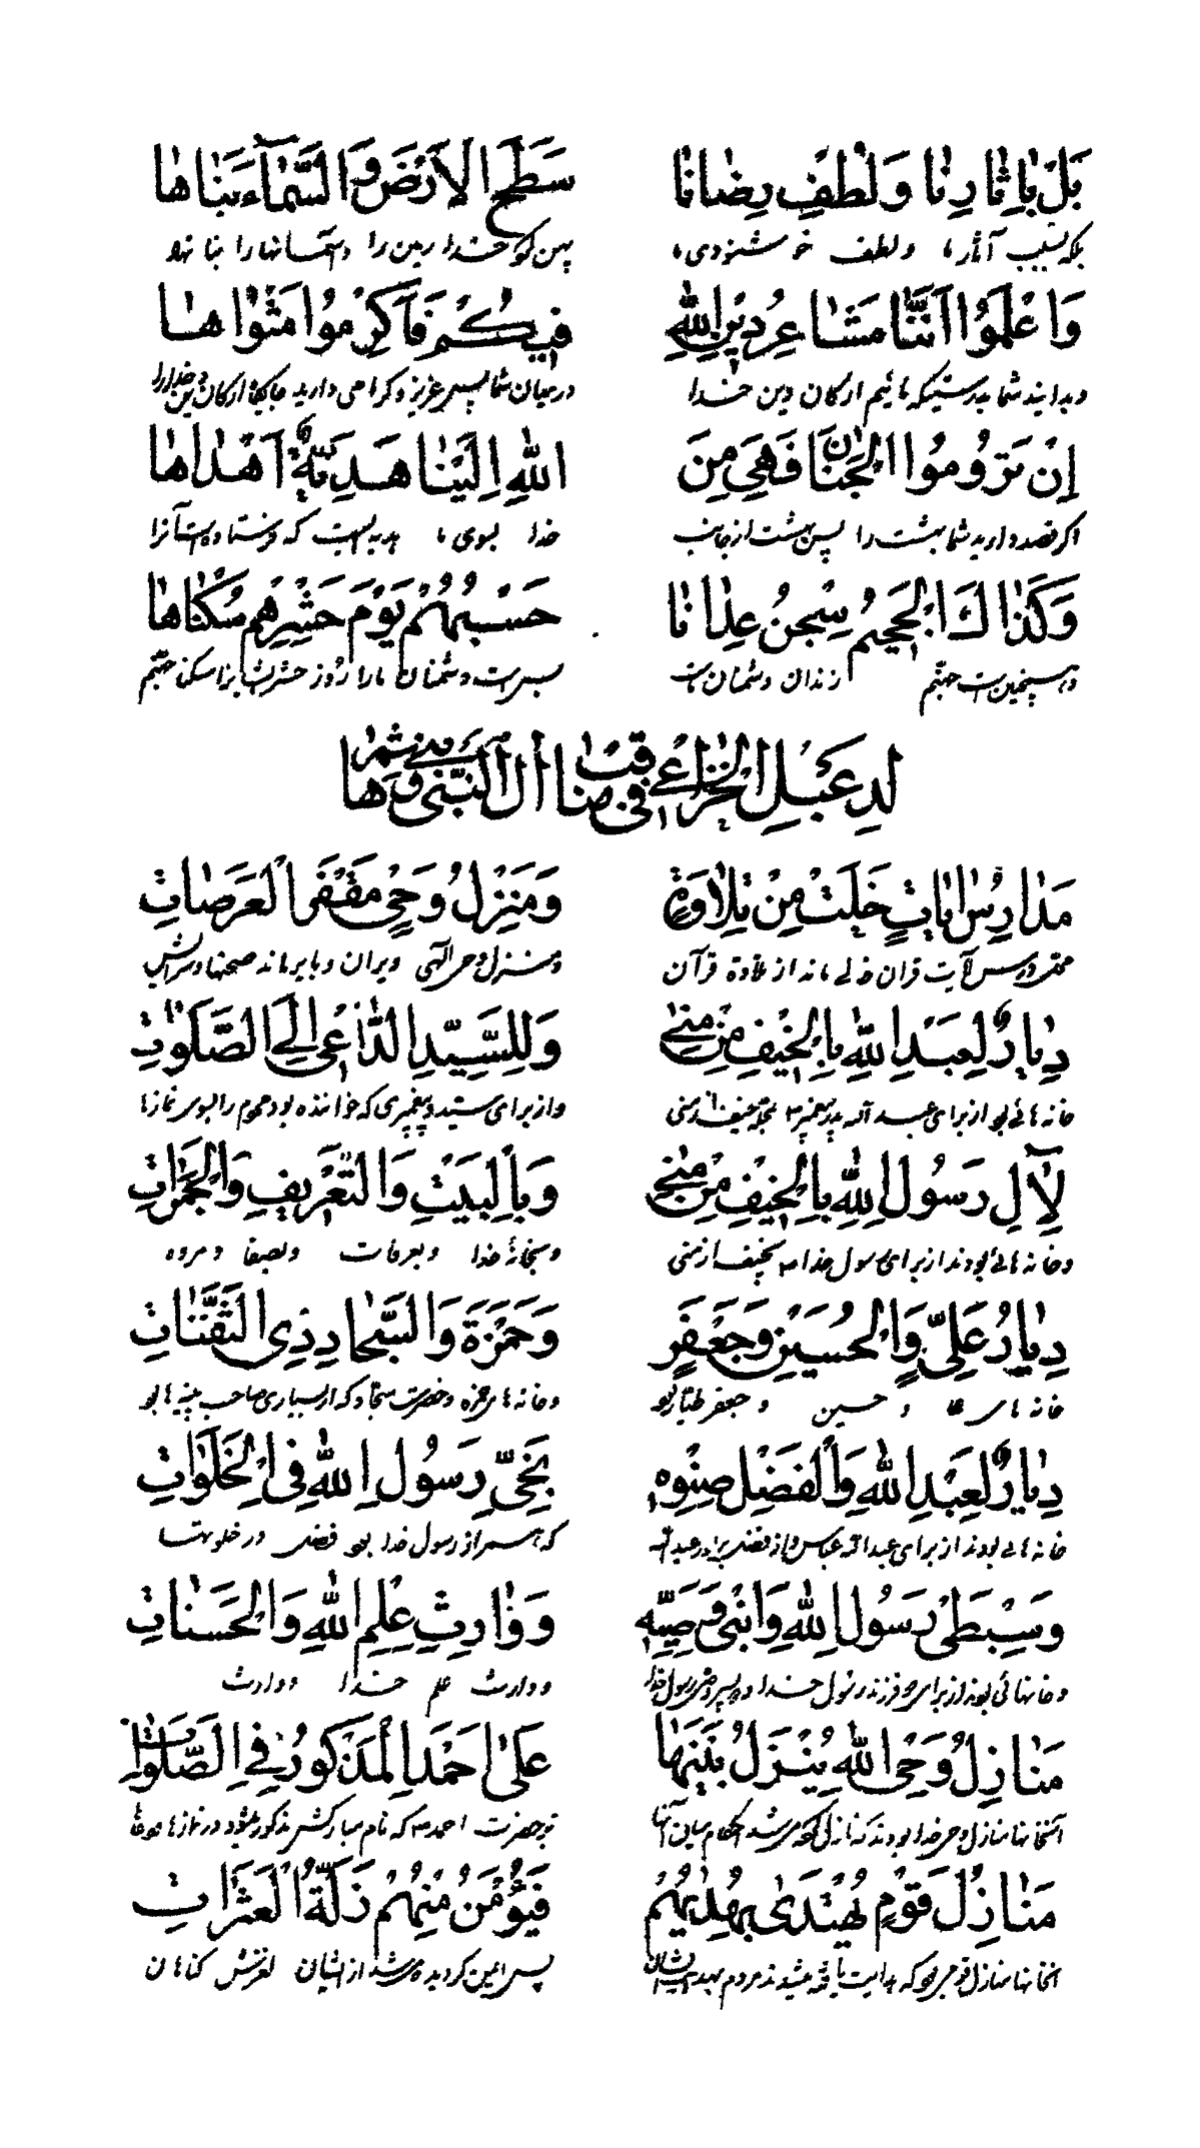 بَلْ بِاٰثارِنا وَلُطْفِ رِضانا سَطَحَ الْاَرْضَ وَالسَّمآءَ بَناها
بلکه بسبب آثار ما ولطف خوشنودی ما پهن کرد خدا زمین را و آسمانها را بنا نهاد
وَاعْلَمُوا اَنَّنا مَشاعِرُ دینِ اللهِ فیکُمْ فَاَکْرِمُوا مَثْواها
وبدانید شما بدرستیکه مائیم ارکان دین خدا در میان شما پس عزیز وگرامی دارید جایگاه ارکان دین خدا را
اِنْ تَرُومُوا الْجِنانَ فَهِیَ مِنَ اللهِ اِلَیْنا هَدِیَّةٌ اَهْداها
اگر قصد دارید شما بهشت را پس بهشت از جانب خدا بسوی ما هدیه ایست که فرستاده است آنرا
وَکَذاكَ الْجَحیمُ سِجْنُ عِدانا حَسْبُهُمْ یَوْمَ حَشْرِهِم سُکْناها
وهمچنین است جهنم زندان دشمنان ما بس است دشمنان ما را روز حشر ایشان سکنای جهنم
لِدِعْبِلِ الْخُزاعیِّ فی مَناقِبِ اٰلِ النَّبیِّ
مَدارِسُ اٰیاتٍ خَلَتْ مِنْ تِلاوَةٍ وَمَنْزِلُ وَحْیٍ مُقْفِرُ الْعَرَصاتِ
آیات قرآن خالی ماند از تلاوة قرآن ومنزل وحی الهی ویران وبایر ماند
دِیارٌ لِعَبْدِ اللهِ بِالْخَیْفِ مِنْ مِنیٰ وَلِلسَّیِّدِ الدّاعی اِلَی الصَّلَواتِ
خانه هائی بود از برای عبدالله پدر پیغمبر واز برای سید پیغمبری که خواننده بود مردم را بسوی نمازها
لِاٰلِ رَسُولِ اللهِ بِالْخَیْفِ مِنْ مِنیٰ وَبِالْبَیْتِ وَالتَّعْریفِ وَالْجَمَراتِ
وخانه هائی بودند از برای رسول خدا بخیف از منی وبخانهٔ خدا وبعرفات وبصفا ومروه
دِیارُ عَلِیٍّ وَالْحُسَیْنِ وَجَعْفَرٍ وَحَمْزَةَ وَالسَّجّادِ ذِی الثَّفَناتِ
خانه های علی و حسین و جعفر طیار بود وخانه های حمزه وحضرت سجاد که از بسیاری صاحب پینه ها بود
دِیارٌ لِعَبْدِ اللهِ وَالْفَضْلِ صِنْوِهِ نَجِیِّ رَسُولِ اللهِ فِی الْخَلَواتِ
خانه هائی بودند از برای عبدالله عباس واز فضل برادر عبدالله که همراز رسول خدا بود فضل در خلوتها
وَسِبْطَیْ رَسُولِ اللهِ وَابْنَیْ وَصِیِّهِ وَوارِثِ عِلْمِ اللهِ وَالْحَسَناتِ
وخانهائی بودند از برای دو فرزند رسول خدا ودو پسر وصی رسول خدا ووارث علم خدا ووارث
مَنازِلُ وَحْیِ اللهِ یُنْزَلُ بَیْنَها عَلیٰ اَحْمَدَ الْمَذْکُورِ فِی الصَّلَواتِ
آنخانها منازل وحی خدا بودند که نازل میشد احکام میان آنها بر حضرت احمد که نام مبارکش مذکور میشود در نمازها
مَنازِلُ قَوْمٍ یُهْتَدیٰ بِهُدیٰهُمُ فَیُؤْمَنُ مِنْهُمْ زَلَّةُ الْعَثَراتِ
آنخانها منازل قومی بود که هدایت یافته میشدند مردم بهدایت ایشان پس ایمن گردیده میشد از ایشان لغزش گناهان